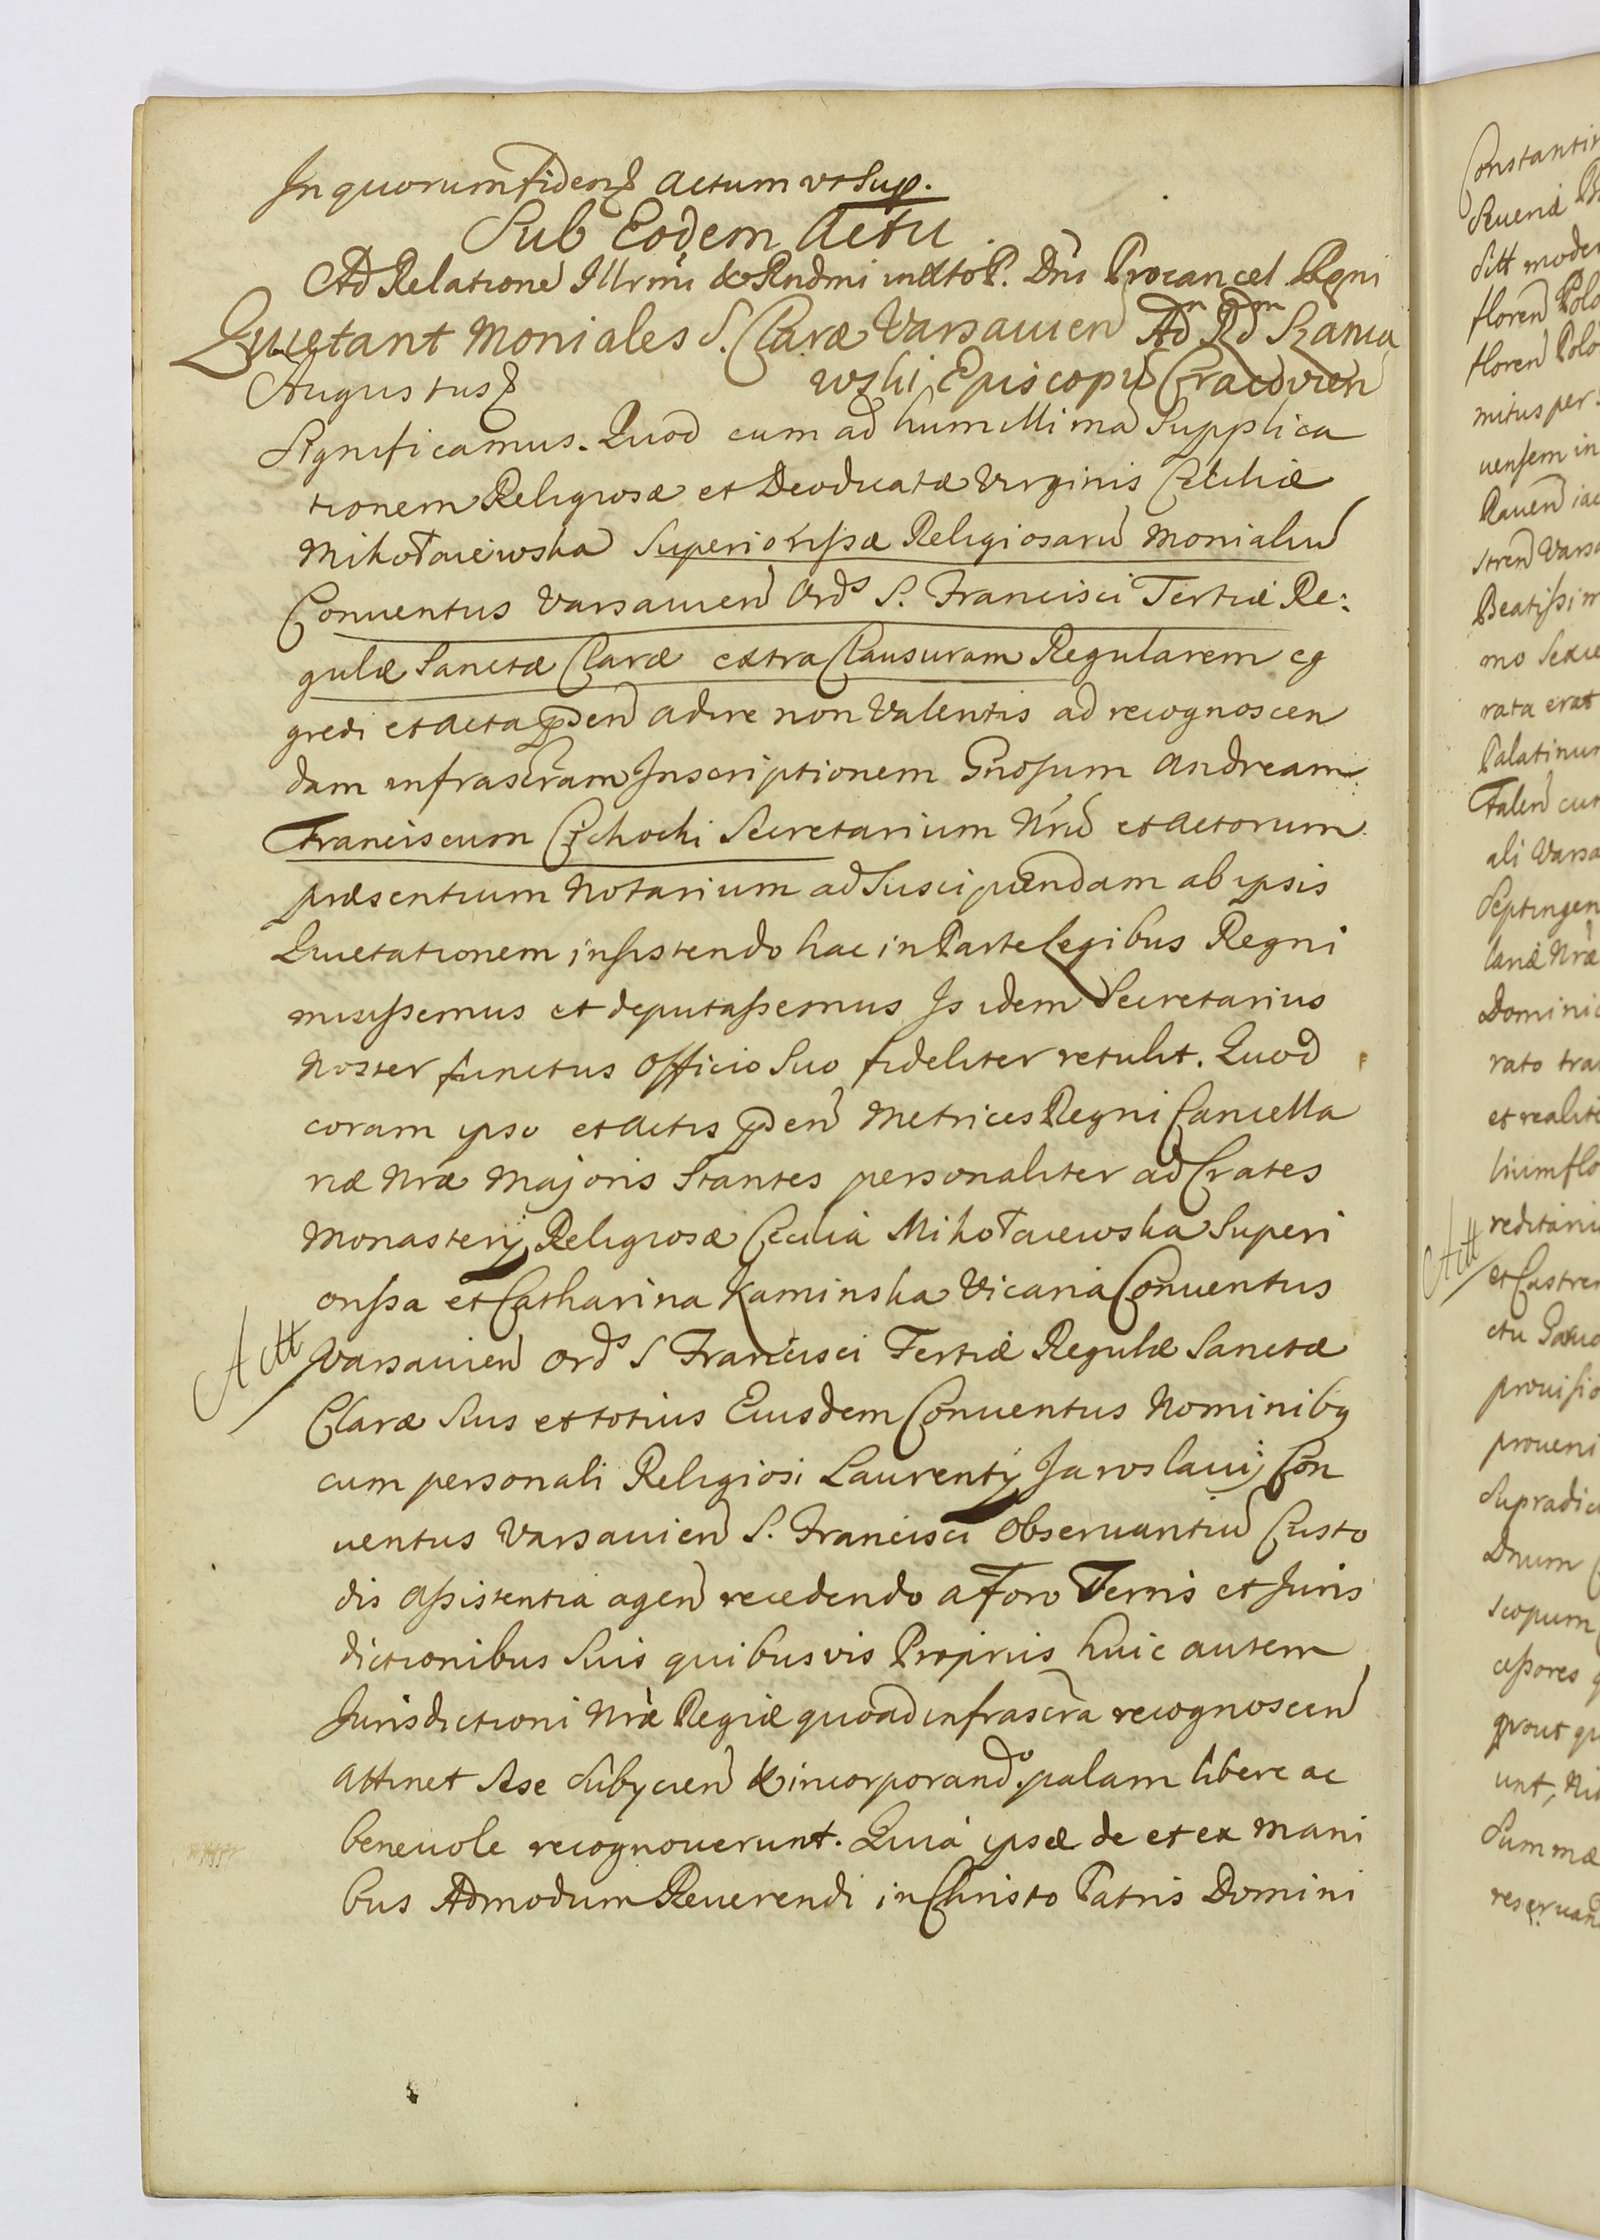 In quorum fidem actum ut Sup.
Sub Eodem Actu
Ad Relatione Illrmi & Rndmi P. Dni Procancel Regni
Quietant Moniales S. Claræ Varsauien Adm Rdm Szania
wski Episcopu Cracovien
Augustus
Significamus. Quod cum ad humillima Supplica
tionem Religiosæ et Deodicatæ Virginis Ceciliæ
Mikołaiewska Superiorissæ Religiosaru Monialiu
Conuentus Varsauien Ords S. Francisci Tertiæ Re:
gulæ Sanctæ Claræ extra Clausuram Regularem eg
gredi et Acta pden adire non Valentis ad recognoscen
dam infrascram Inscriptionem Gnosum Andream
Franciscum Cichocki Secretarium Nru et Actorum
præsentium Notarium ad Suscipiendam ab ipsis
Quietationem insistendo hac in Parte Legibus Regni
misissemus et deputassemus Is idem Secretarius
Noster functus Officio Suo fideliter retulit. Quod
coram ipso et Actis pden Metrices Regni Cancella
riæ Nræ Majoris Stantes personaliter ad Crates
Monasterij Religiosæ Cecilia Mikołaiewska Superi
orissa et Catharina Kaminska Vicaria Conuentus
Varsauien Ords S Francisci Tertiæ Regulæ Sanctæ
Claræ Suis et totius Eiusdem Conuentus Nominibq
cum personali Religiosi Laurentij Jaroslauij Con
uentus Varsauien S. Francisci Obseruantiu Custo
dis Assistentia agen recedendo a Foro Terris et Juris
dictionibus Suis quibusvis Proprijs huic autem
Jurisdictioni Nræ Regiæ quoad infrascra recognoscen
attinet Sese Subijcien & incorporando palam libere ac
beneuole recognouerunt. Quia ipsæ de et ex Mani
bus Admodum Reuerendi in Christo Patris Domini
Actt
Septingen
Dominic
rato tra
Actt
prouisio
proueni
Supradic
Dnum
scopum
cessores
prout
unt,
Summæ